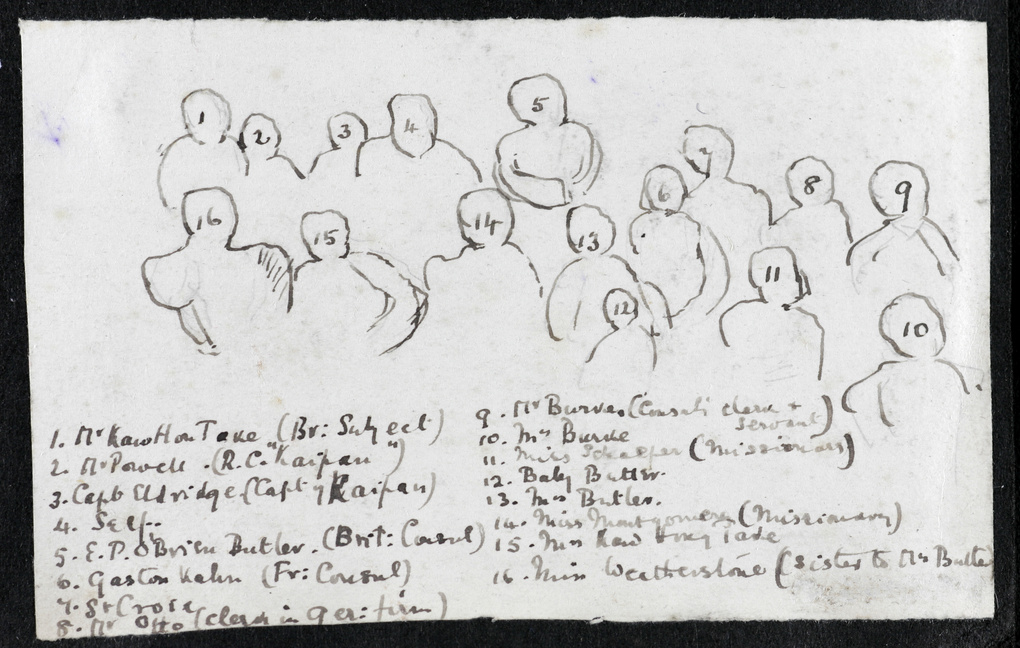 1
2
3
4
5
6
7
8
9
10
11
12
13
14
15
16
1. Mr Kaw Hon Take (Br: Subject)
2. Mr Powell. (R.C. "Kaipan")
3. Capt Eldridge (Capt of Kaipan)
4. Self.
5. E.P. O'Brien Butler. (Brit: Consul)
6. Gaston Kahn (Fr: Consul)
7. St Croix
8. Mr Otto (clerk in Ger: firm)
9. Mr (Consul's clerk +
servant)
10. Mrs Burke
11. Miss Schaeffer (Missionary)
12. Baby Butler.
13. Mrs Butler.
14. Miss Montgomery (Missionary)
15. Mrs Kaw Hong Take
16. Miss Weatherstone (sister to Mrs Butler